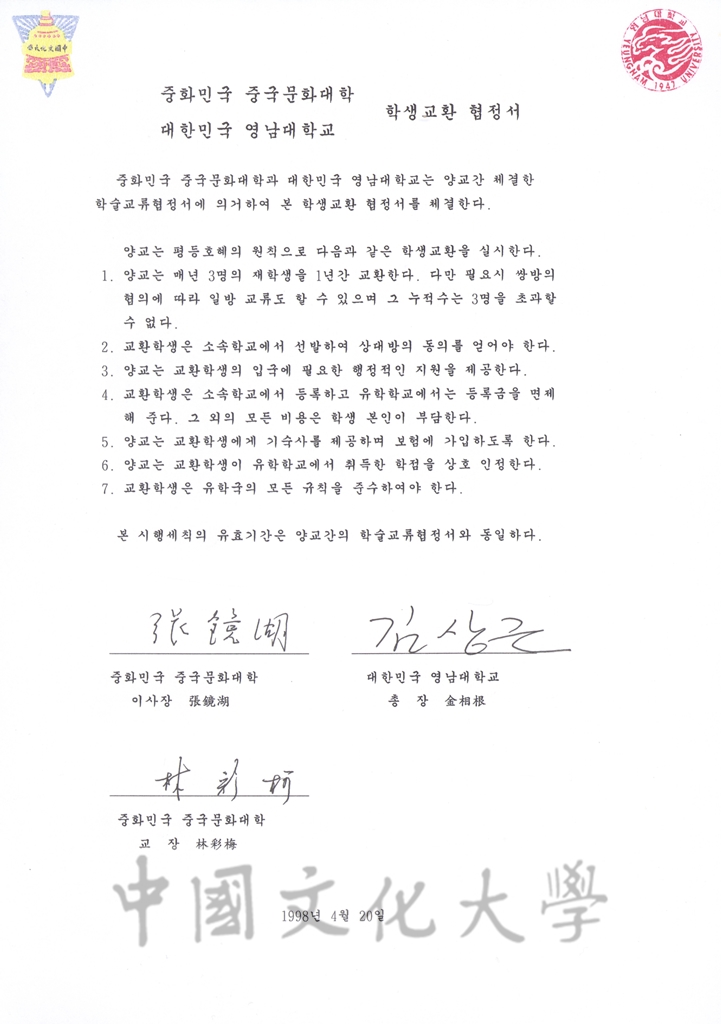 中國文化大學
영남대학교
YEUNGNAM UNIVERSITY
1947
중화민국 중국문화대학
대한민국 영남대학교
학생교환 협정서
중화민국 중국문화대학과 대한민국 영남대학교는 양교간 체결한
학술교류협정서에 의거하여 본 학생교환 협정서를 체결한다.
양교는 평등호혜의 원칙으로 다음과 같은 학생교환을 실시한다.
1. 양교는 매년 3명의 재학생을 1년간 교환한다. 다만 필요시 쌍방의
협의에 따라 일방 교류도 할 수 있으며 그 누적수는 3명을 초과할
수 없다.
2. 교환학생은 소속학교에서 선발하여 상대방의 동의를 얻어야 한다.
3. 양교는 교환학생의 입국에 필요한 행정적인 지원을 제공한다.
4. 교환학생은 소속학교에서 등록하고 유학학교에서는 등록금을 면제
해 준다. 그 외의 모든 비용은 학생 본인이 부담한다.
5. 양교는 교환학생에게 기숙사를 제공하며 보험에 가입하도록 한다.
6. 양교는 교환학생이 유학학교에서 취득한 학점을 상호 인정한다.
7. 교환학생은 유학국의 모든 규칙을 준수하여야 한다.
본 시행세칙의 유효기간은 양교간의 학술교류협정서와 동일하다.
張鏡湖
김상근
중화민국 중국문화대학
이사장 張鏡湖
대한민국 영남대학교
총 장 金相根
林彩梅
중화민국 중국문화대학
교 장 林彩梅
中國文化大學
1998년 4월 20일